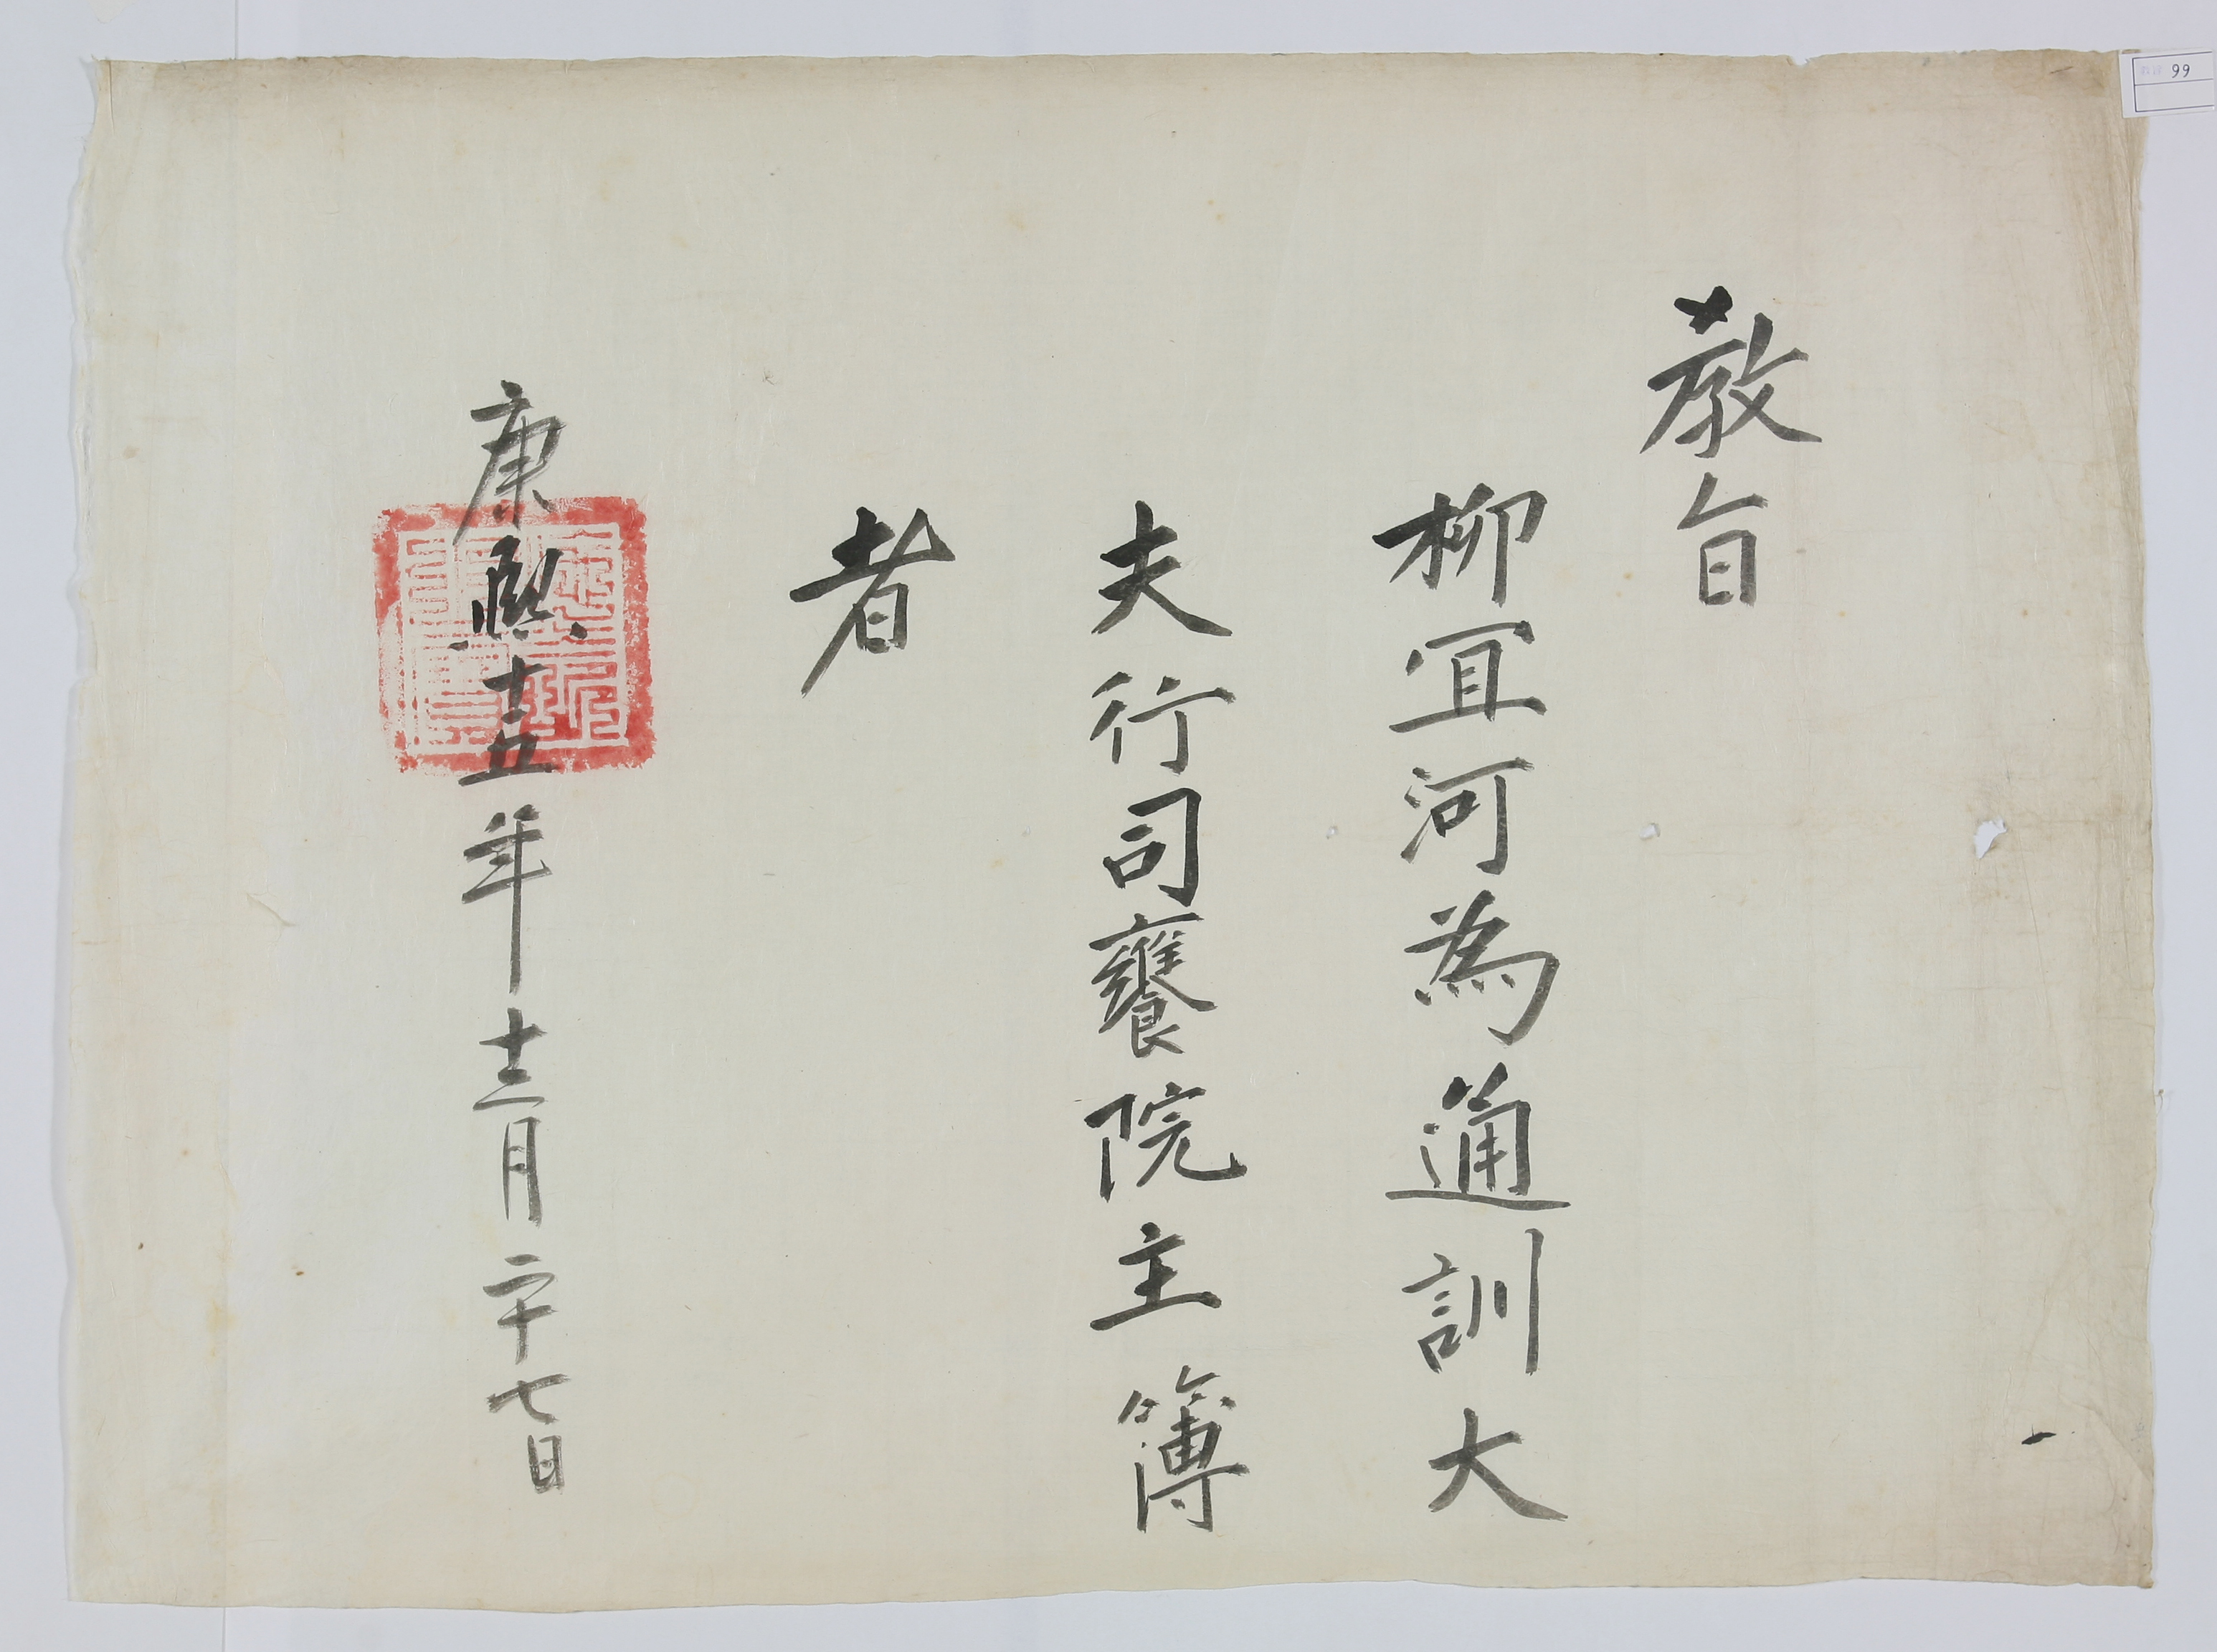 教旨
柳冝河為通訓大
夫行司饔院主簿
者
康熙十五年十二月二十七日
99